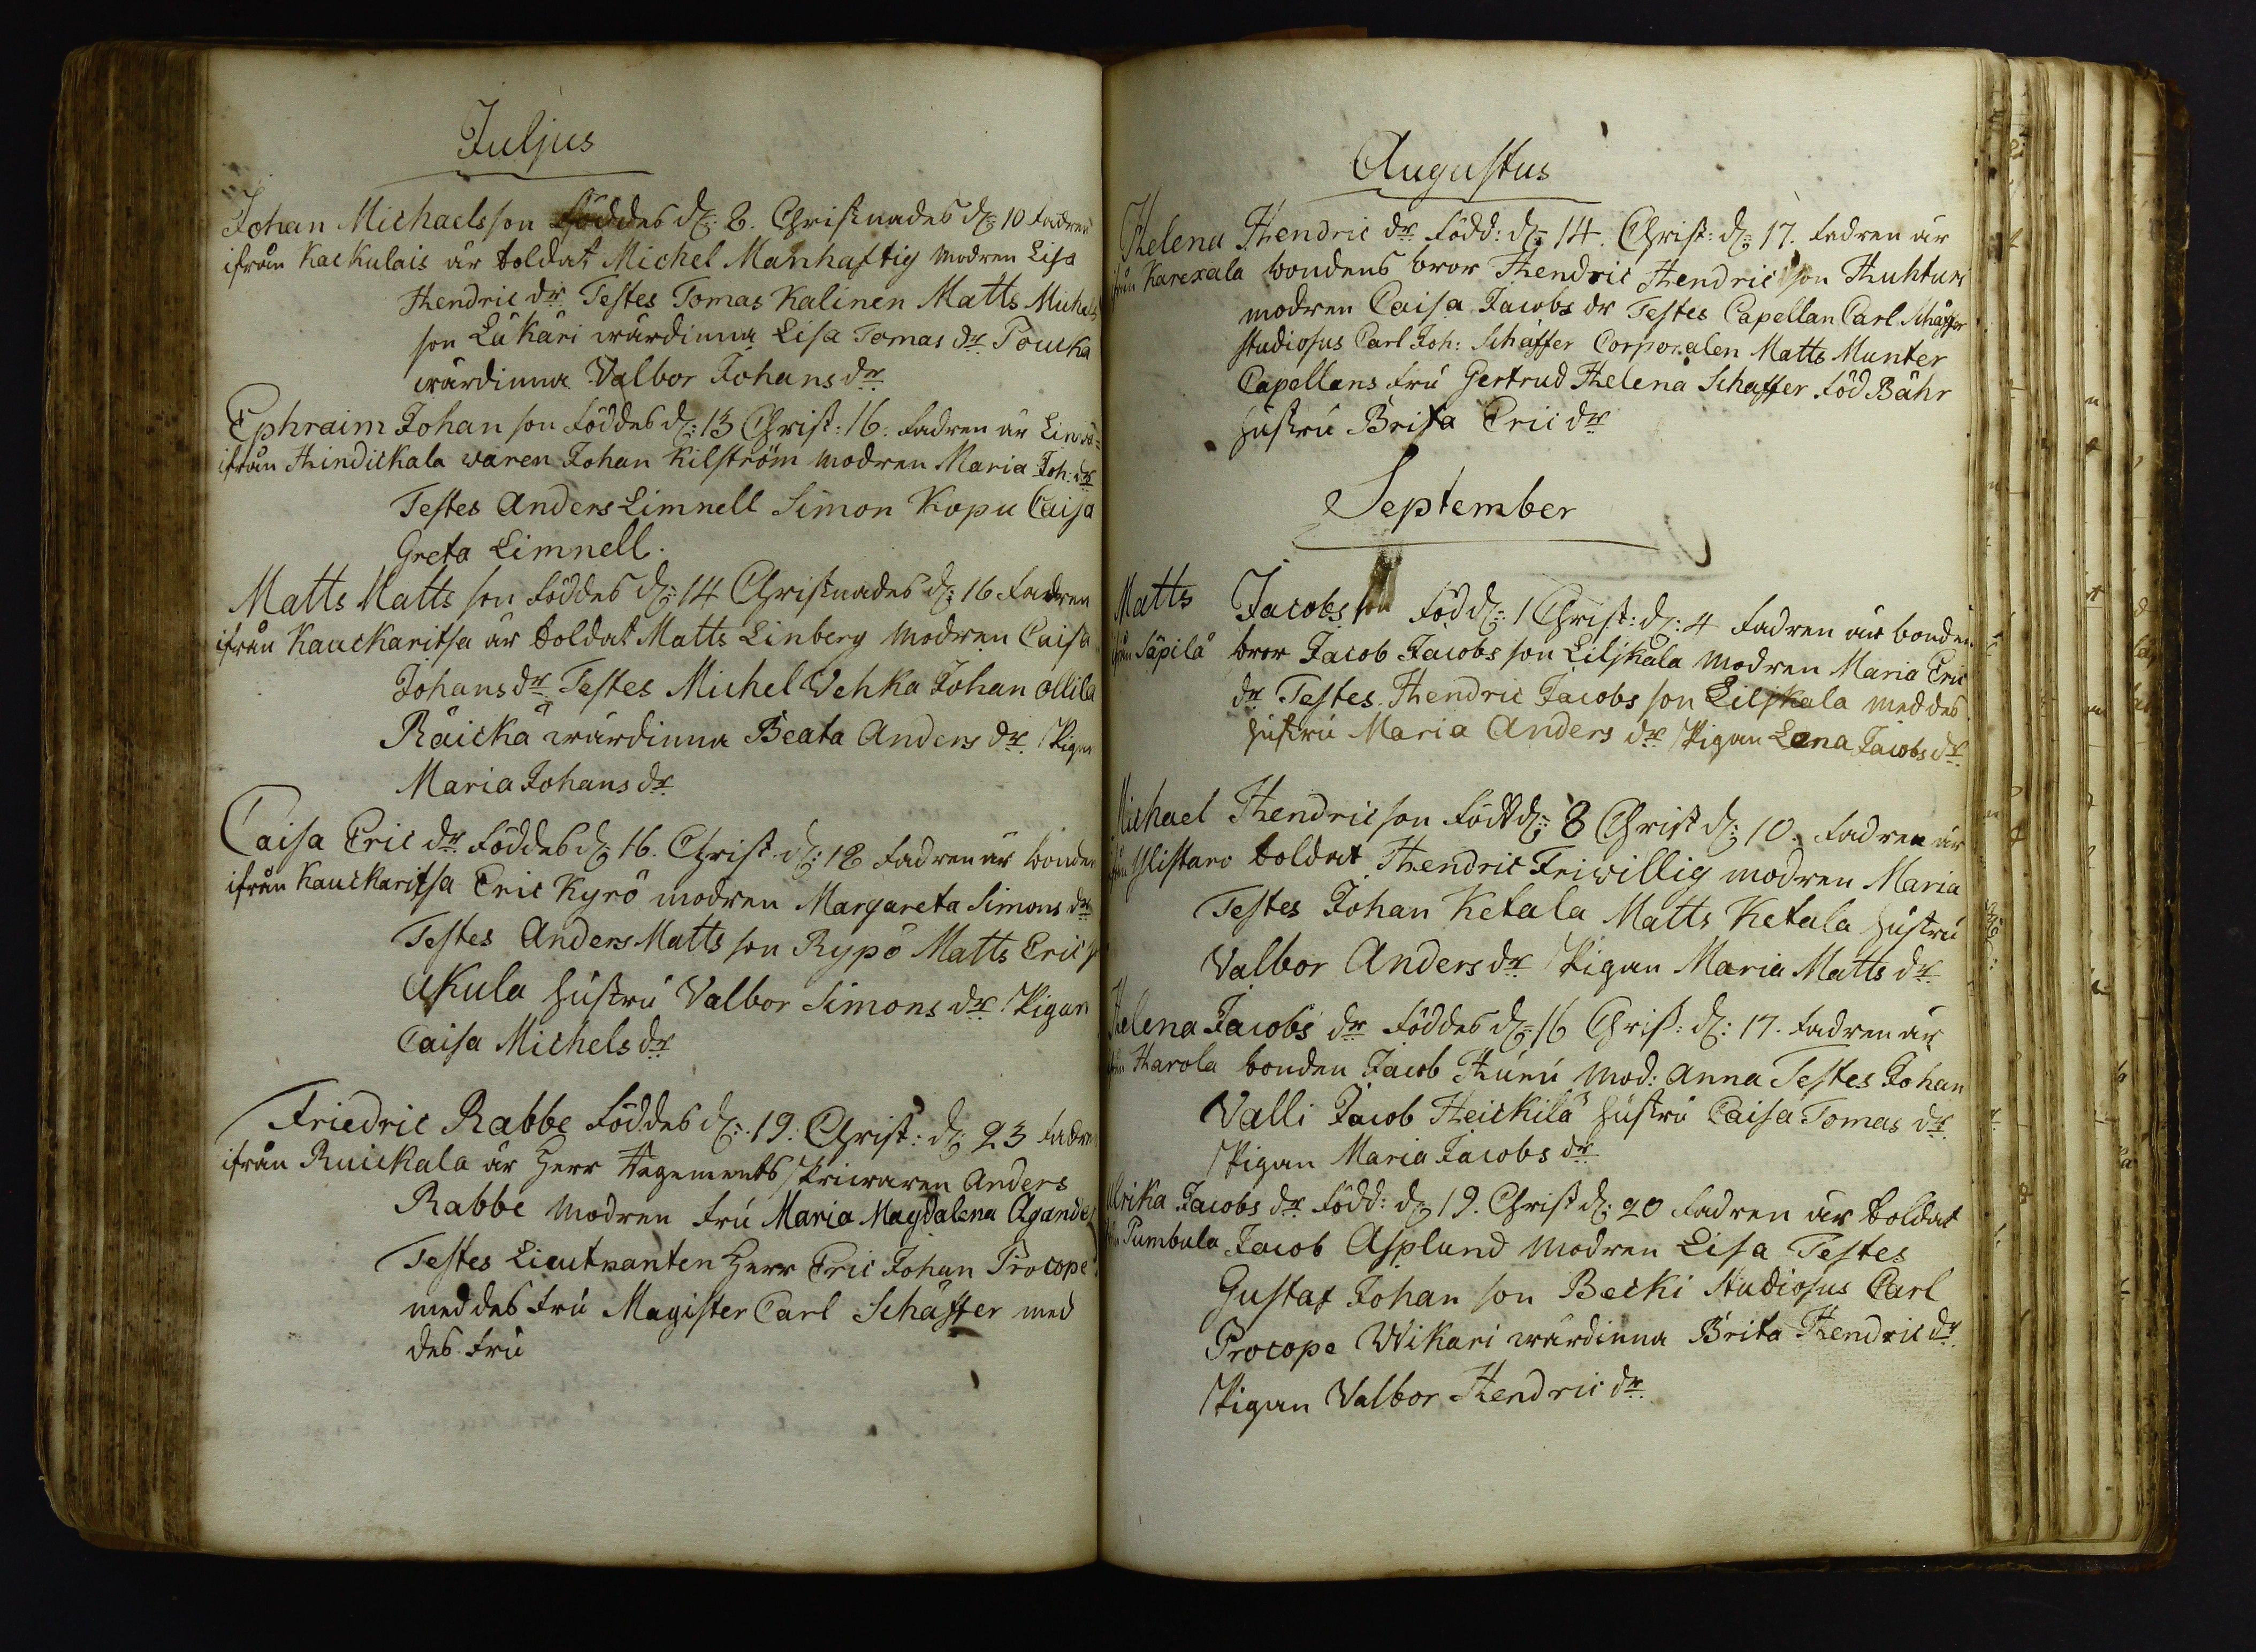 Juljus
Johan Michaelsson föddes d: 8. Christnades d: 10 Fadren
ifrån Kackulais är Soldat Michel Manhaftig modren Lisa
Hendric dr Testes Tomas Kalinen Matts Michels
son Lukari wärdinna Lisa Tomas dr Poucka
wärdinna Valbor Johans dr
Ephraim Johan son föddes d: 13 Christ: 16. fadren är Linwä=
ifrån Hindickala waren Johan Kilström modren Maria Joh: dr
Testes Anders Limnell Simon Kopu Caisa
Greta Limnell.
Matts Matts son föddes d: 14 Christnades d: 16 Fadren
ifrån Kauckaritsa är Soldat Matts Linberg modren Caisa
Johans dr Testes Michel Wehka Johan ollila
Räickä wärdinna Beata Anders dr Pigan
Maria Johans dr
Caisa Eric dr föddes d: 16. Christ d: 18 Fadren är bonden
ifrån Kauckaritsa Eric Kyrö modren Margareta Simons dr
Testes Anders Matts son Rypö Matts Eric
Ukula hustru Valbor Simons dr Pigan
Caisa Michels dr
Friedric Rabbe föddes d: 19. Christ: d: 23 Fadren
ifrån Ruickala är Herr Regements Skriwaren Anders
Rabbe modren fru Maria Magdalena Agander
Testes Lieutnanten Herr Eric Johan Procope
med des fru Magister Carl Schäffer med
des fru
Augustus
Helena Hendric dr född: d: 14. Christ: d: 17. Fadren är
ifrån Karexala bondens bror Hendric Hendric son Huhturi
modren Caisa Jacobs dr Testes Capellan Carl Schäffer
studiosus Carl Joh: Schäffer Corporalen Matts Munter
Capellans fru Gertrud Helena Schaffer föd Bähr
hustru Brita Eric dr
September
Matts Jacobs son föd d: 1 Christ: d: 4 fadren är bonden
ifrån Säpilä bror Jacob Jacobs son Liljkala modren Maria Eric
dr Testes Hendric Jacobs son Liljkala med des
hustru Maria Anders dr Pigan Lena Jacobs dr
Michael Hendric son Född d: 8 Christ d: 10. fadren är
ifrån Ylistaro Soldat Hendric Friwillig modren Maria
Testes Johan Ketala Matts Ketala hustru
Valbor Anders dr Pigan Maria Matts dr
Helena Jacobs dr föddes d: 16 Christ: d: 17. fadren är
ifrån Harola bonden Jacob Huru mod: Anna Testes Johan
Valli Jacob Heickilä hustru Caisa Tomas dr
Pigan Maria Jacobs dr
Ulrika Jacobs dr född: d: 19. Christ d: 20 fadren är Soldat
ifrån Pumbula Jacob Asplund modren Lisa Testes
Gustaf Johan son Becki Studiosus Carl
Procope Wikari wärdinna Brita Hendric dr
Pigan Valbor Hendric dr